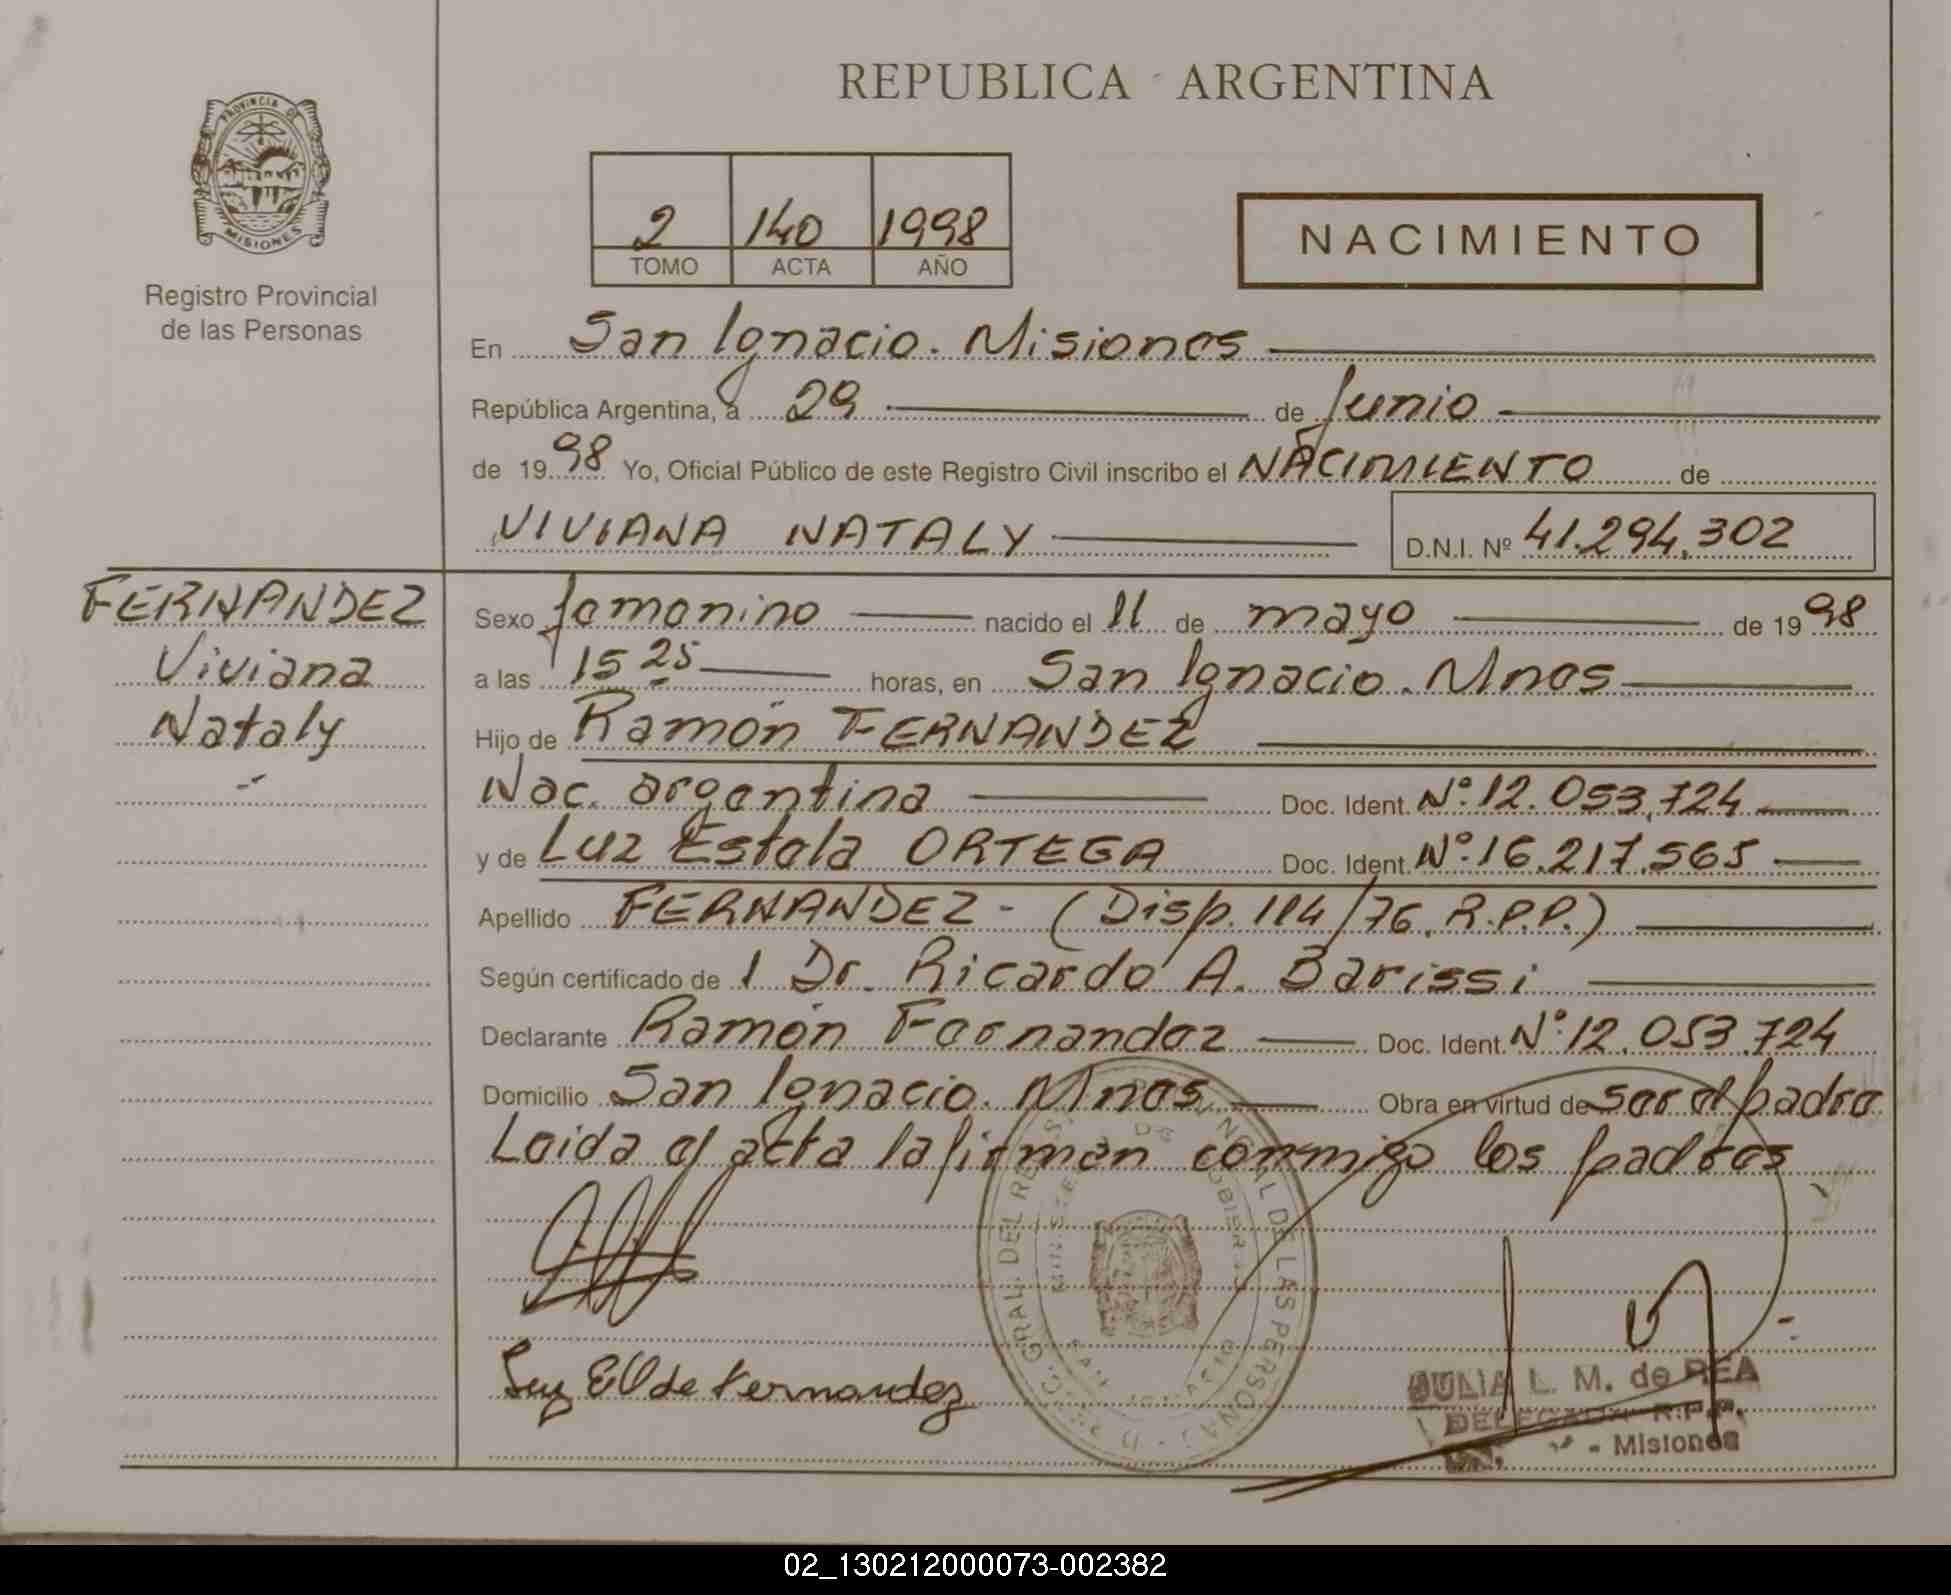 REPUBLICA ARGENTINA
PROVINCIA DE
MISIONES
Registro Provincial
de las Personas
2 140 1998
TOMO ACTA AÑO
NACIMIENTO
En San Ignacio. Misiones
República Argentina, a 29 de Junio
de 1998 Yo, Oficial Público de este Registro Civil inscribo el NACIMIENTO de
VIVIANA NATALY D.N.I. Nº 41.294.302
FERNANDEZ
Viviana
Nataly
Sexo femenino nacido el 11 de mayo de 1998
a las 15 25 horas, en San Ignacio. Mnes
Hijo de Ramón FERNANDEZ
Nac. argentina Doc. Ident. Nº: 12.053.724
y de Luz Estela ORTEGA Doc. Ident. Nº: 16.217.565
Apellido FERNANDEZ - (Disp. 114/76. R.P.P.)
Según certificado de 1 Dr. Ricardo A. Barissi
Declarante Ramón Fernandez Doc. Ident. Nº: 12.053.724
Domicilio San Ignacio. Mnes Obra en virtud de ser el padre
Leida el acta la firman conmigo los padres
Luz E O de Fernandez
JULIA L. M. de REA
DELEGADA R.P.P.
- Misiones
02_130212000073-002382